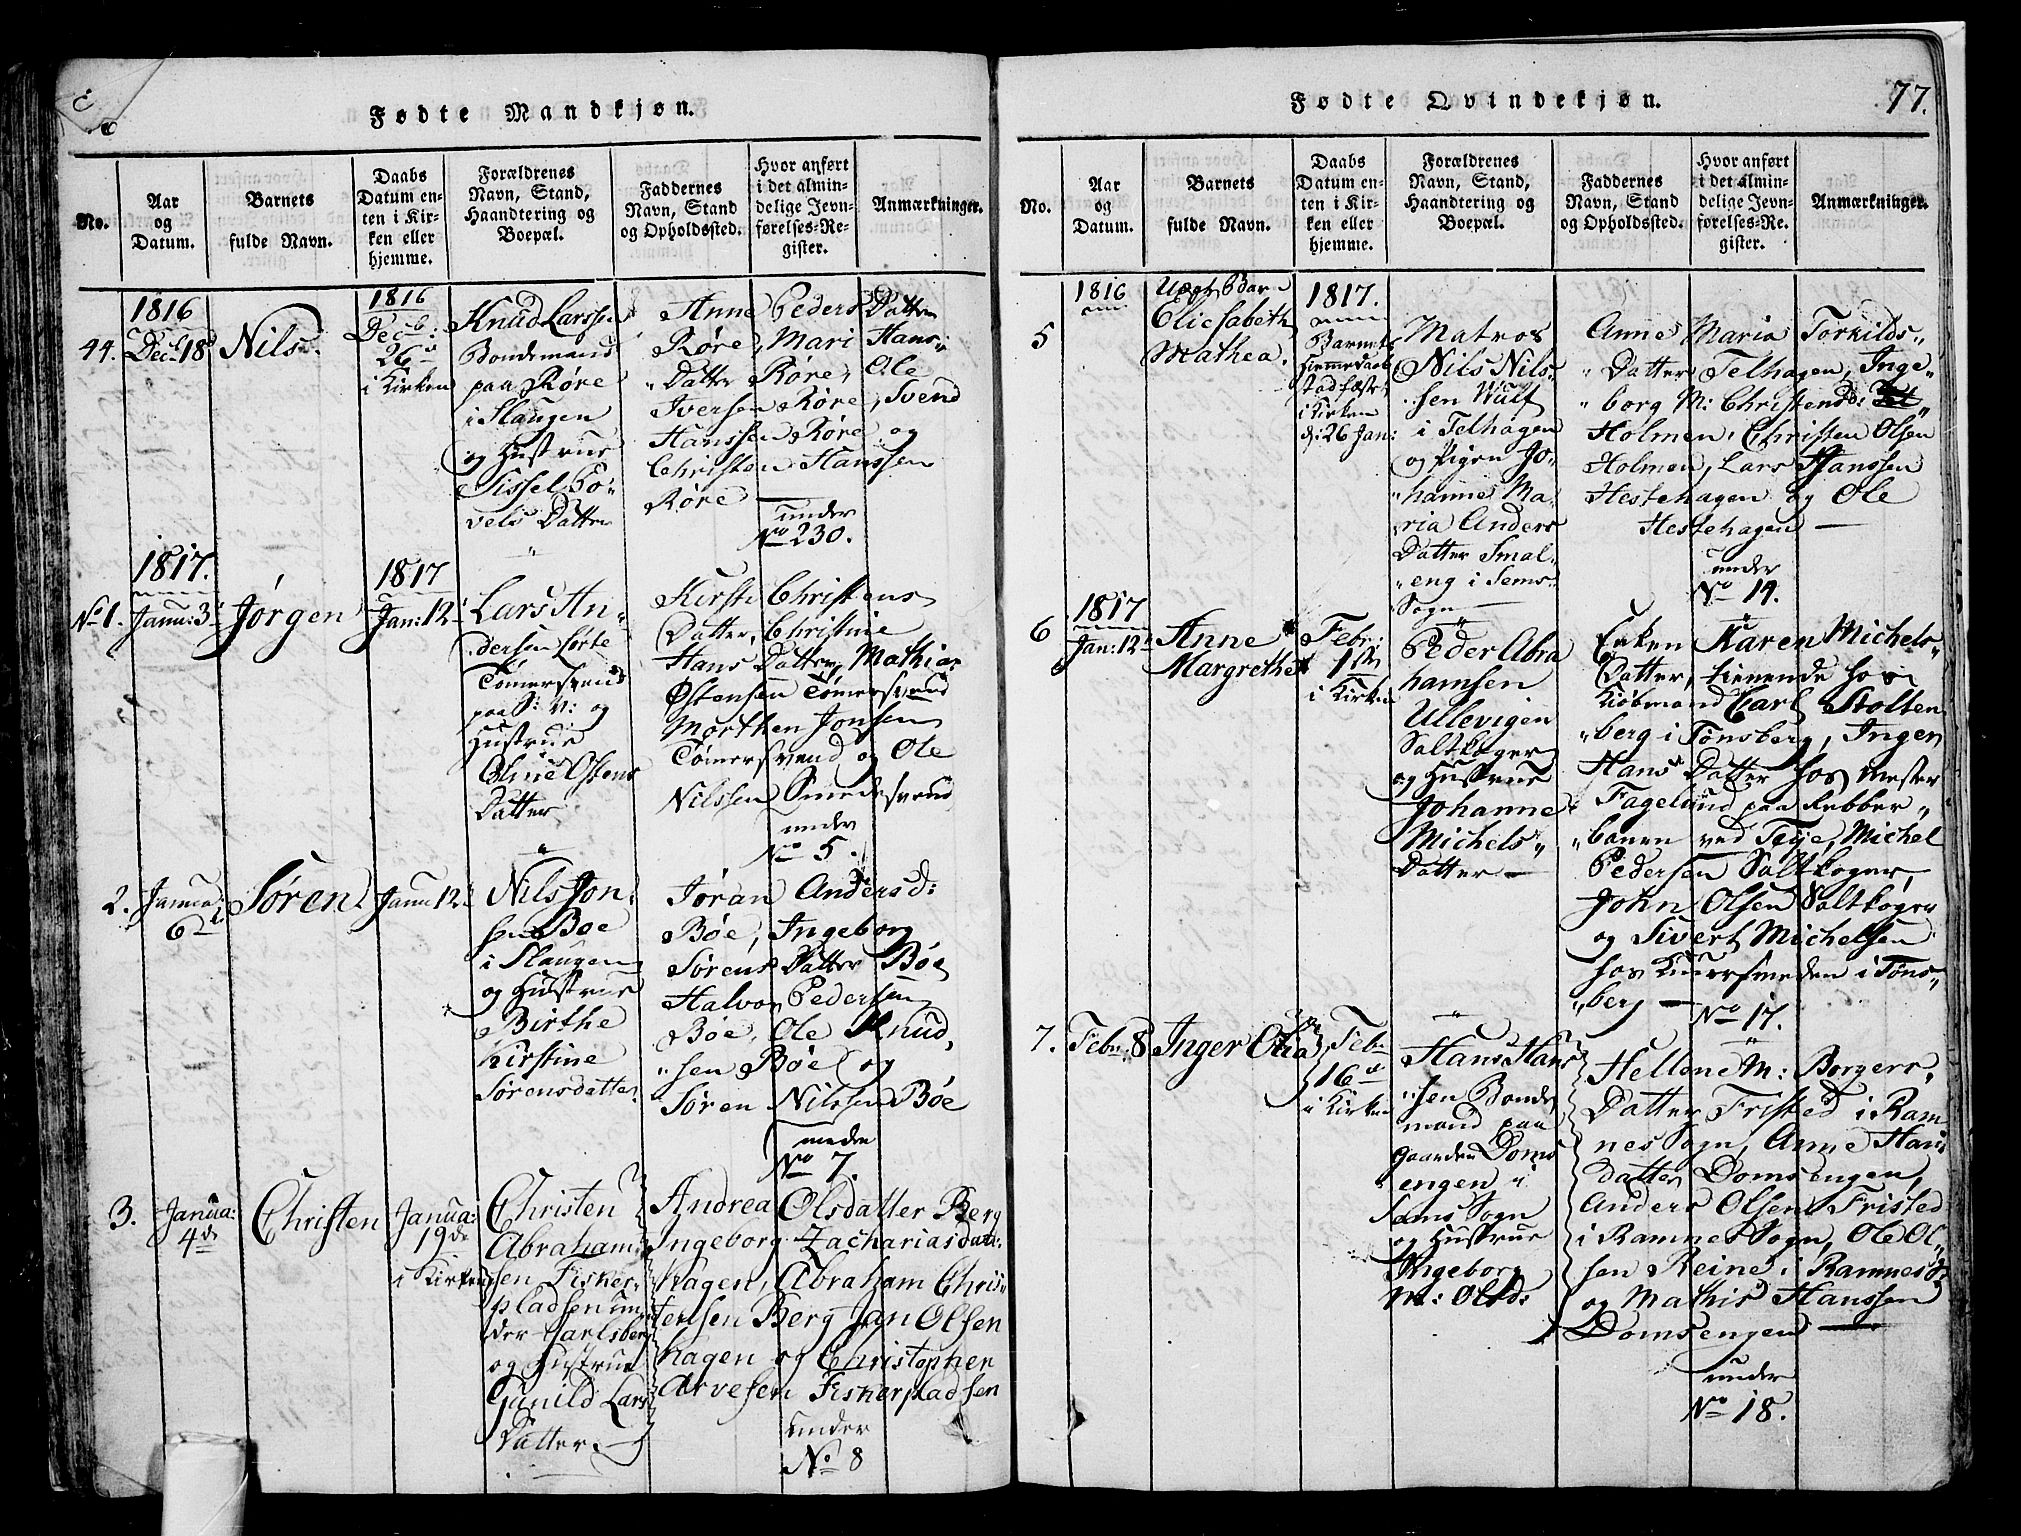 Fødte Mandkjøn.
No.
Aar
og
Datum.
Barnets
fulde Navn.
Daabs
Datum en-
ten i Kir-
ken eller
hjemme.
Forældrenes
Navn, Stand,
Haandtering og
Boepæl.
Faddernes
Navn, Stand
og Opholdssted.
Hvor anført
i det almin-
delige Jevn-
førelses-Re-
gister.
Anmærkninger.
44.
1816
Decb: 18d
Nils.
1816
Decb:
26
i Kirken
Knud Larssen
Bondemand
paa Røre
i Slaugen
og Hustrue
Sissel Bo-
vels Datter
Anne Peders Datter
Røre, Mari Hans
Datter Røre, Ole
Iversen Røre, Svend
Hanssen Røre og
Christen Hanssen
Røre
under
No 230.
1817.
No 1.
Janu: 3
Jørgen
1817
Jan: 12
Lars An-
dersen Lorte
Tømersvend
paa S: V: og
Hustrue
Olstens
Datter
Kirsti Christens
Datter, Christine
Hans Datter, Mathias
Østensen Tømersvend
Morthen Jonsen
Tømersvend og Ole
Nilssen Smedesvend
under
No 5.
2.
Janua:
6
Søren
Janu: 12
Nils Jon-
sen Bøe
i Slaugen
og Hustrue
Birthe
Kirstine
Sørensdatter
Jøran Andersd:
Bøe, Ingeborg
Sørens Datter Bøe
Halvor Pedersen
Bøe, Ole Knud-
sen Bøe og
Søren Nilssen Bøe
under
No 7.
3.
Janua:
4de
Christen
Janua:
19de
i Kirken
Christen
Abraham-
sen Fisker-
pladsen un-
der Jarlsberg
og Hustrue
Gunild Lars
Datter
Andrea Olsdatter Berg
Ingeborg Zachariasdatt:
hagen, Abraham Chris-
tensen Berg Jan Olsen
hagen og Christopher
Arvesen Fiskerpladsen
under
No. 8
Fødte Qvindekjøn.
77.
No.
Aar
og
Datum.
Barnets
fulde Navn.
Daabs
Datum en-
ten i Kir-
ken eller
hjemme.
Forældrenes
Navn, Stand,
Haandtering og
Boepæl.
Faddernes
Navn, Stand
og Opholdssted.
Hvor anført
i det almin-
delige Jevn-
førelses-Re-
gister.
Anmærkninger.
5
1816
Uægt Barn
Elisabeth
Mathea.
1817.
Barnets
Hjemmedaab
stadfæstet
i Kirken
d: 26 Jan:
Matros
Nils Nils-
sen Wulf
i Telhagen
og Pigen Jo-
hanne Ma-
ria Anders
Datter Smal-
eng i Sems
Sogn
Anne Maria Torkilds-
Datter Telhagen, Inge-
borg M: Christensd:
Holmen, Christen Olsen
Holmen, Lars Hanssen
Hestehagen og Ole
Hestehagen
under
No 14.
6
1817
Jan: 12
Anne
Margrethe
Febr:
i Kirken
Peder Abra
hamsen
Ullevigen
Saltkoger
og Hustrue
Johanne
Michels-
Datter
Enken Karen Michels-
Datter, tienende hos
Kiøbmand Carl Stolten
berg i Tønsberg, Ingen
Hans Datter hos Mester
Fagelund paa Rebber-
banen ved Teije, Michel
Pedersen Saltkoger,
John Olsen Saltkoger
og Sivert Michelsen
hos Kaaersmeden i Tøns-
berg
No 17.
7.
Febr: 8
Inger Olia
Feb:
16
i Kirken
Hans Hans
sen Bonde
mand paa
Gaarden Doms
engen i
Sems Sogn
og Hustrue
Ingeborg
M: Olsd:
Hellene M: Borgers,
Datter Fristed i Ram
nes Sogn, Anne Hans
datter Domsengen,
Anders Olsen Fristed
i Ramnes Sogn, Ole Ol-
sen Reine i Ramnes S:
og Mathis Hanssen
Domsengen
under
No 18.